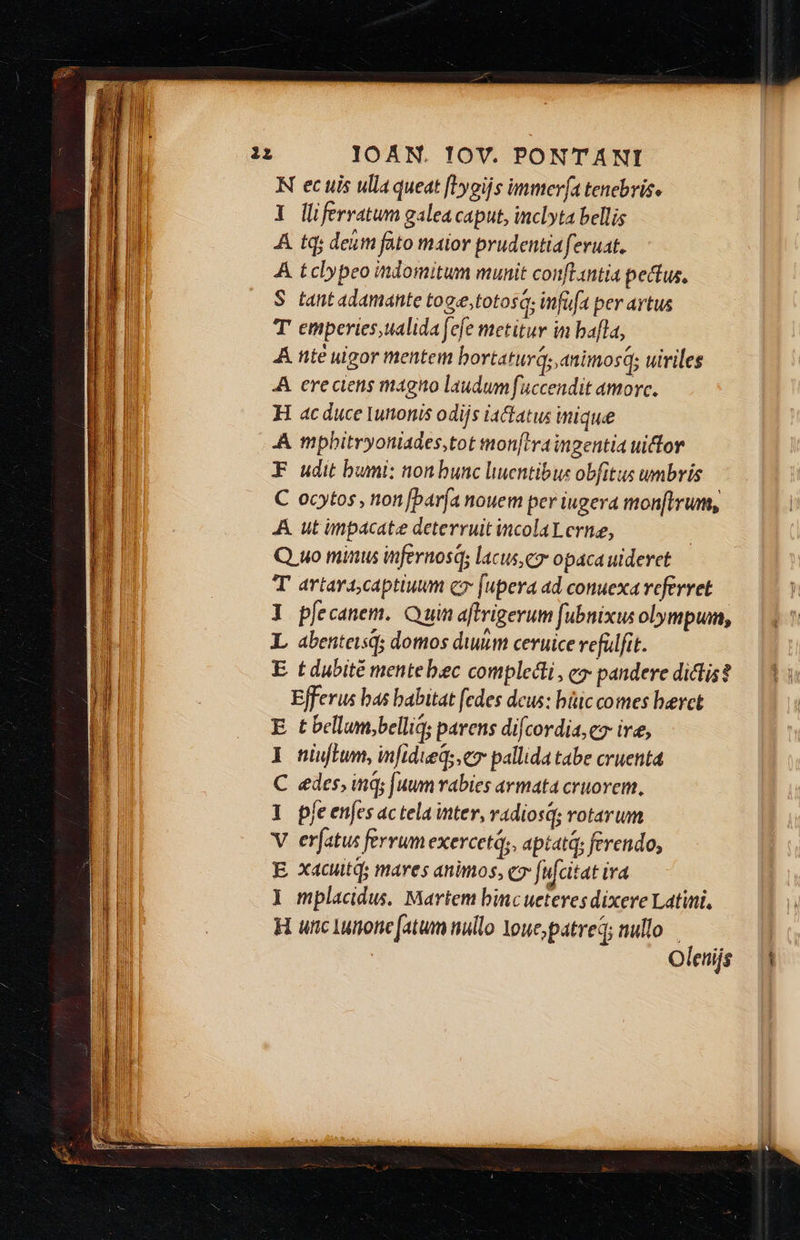 22 IOAN. IOV. PONTANI
N ec uis ulla queat ſtygijs immerſa tenebris.
I lli ferratum galea caput, inclyta bellis
A tq; deûm fato maior prudentia ſeruat.
A t clypeo indomitum munit conſtantia pectus.
S tant adamante togæ, totosq́; infuſa per artus
T emperies, ualida ſeſe metitur in haſta,
A nte uigor mentem hortaturq́;, animosq́; uiriles
A cre ciens magno laudum ſuccendit amore.
H ac duce Iunonis odijs iactatus iniquæ
A mphitryoniades, tot monſtra ingentia uictor
F udit humi: non hunc liuentibus obſitus umbris
C ocytos, non ſparſa nouem per iugera monſtrum,
A ut impacatæ deterruit incola Lernæ,
Q uo minus infernosq́; lacus, & opaca uideret
T artara, captiuum & ſupera ad conuexa referret
I pſe canem. Quin aſtrigerum ſubnixus olympum,
L abenteisq́; domos diuûm ceruice refulſit.
E t dubitē mente hæc complecti, & pandere dictis?
Efferus has habitat ſedes deus: hûic comes hæret
E t bellum, belliq́; parens diſcordia, & iræ,
I niuſtum, inſidiæq́;, & pallida tabe cruenta
C ædes, inq́; ſuum rabies armata cruorem.
I pſe enſes ac tela inter, radiosq́; rotarum
V erſatus ferrum exercetq́;, aptatq́; ferendo,
E xacuitq́; mares animos, & ſuſcitat ira
I mplacidus. Martem hinc ueteres dixere Latini.
H unc Iunone ſatum nullo Ioue, patreq́; nullo
Olenijs